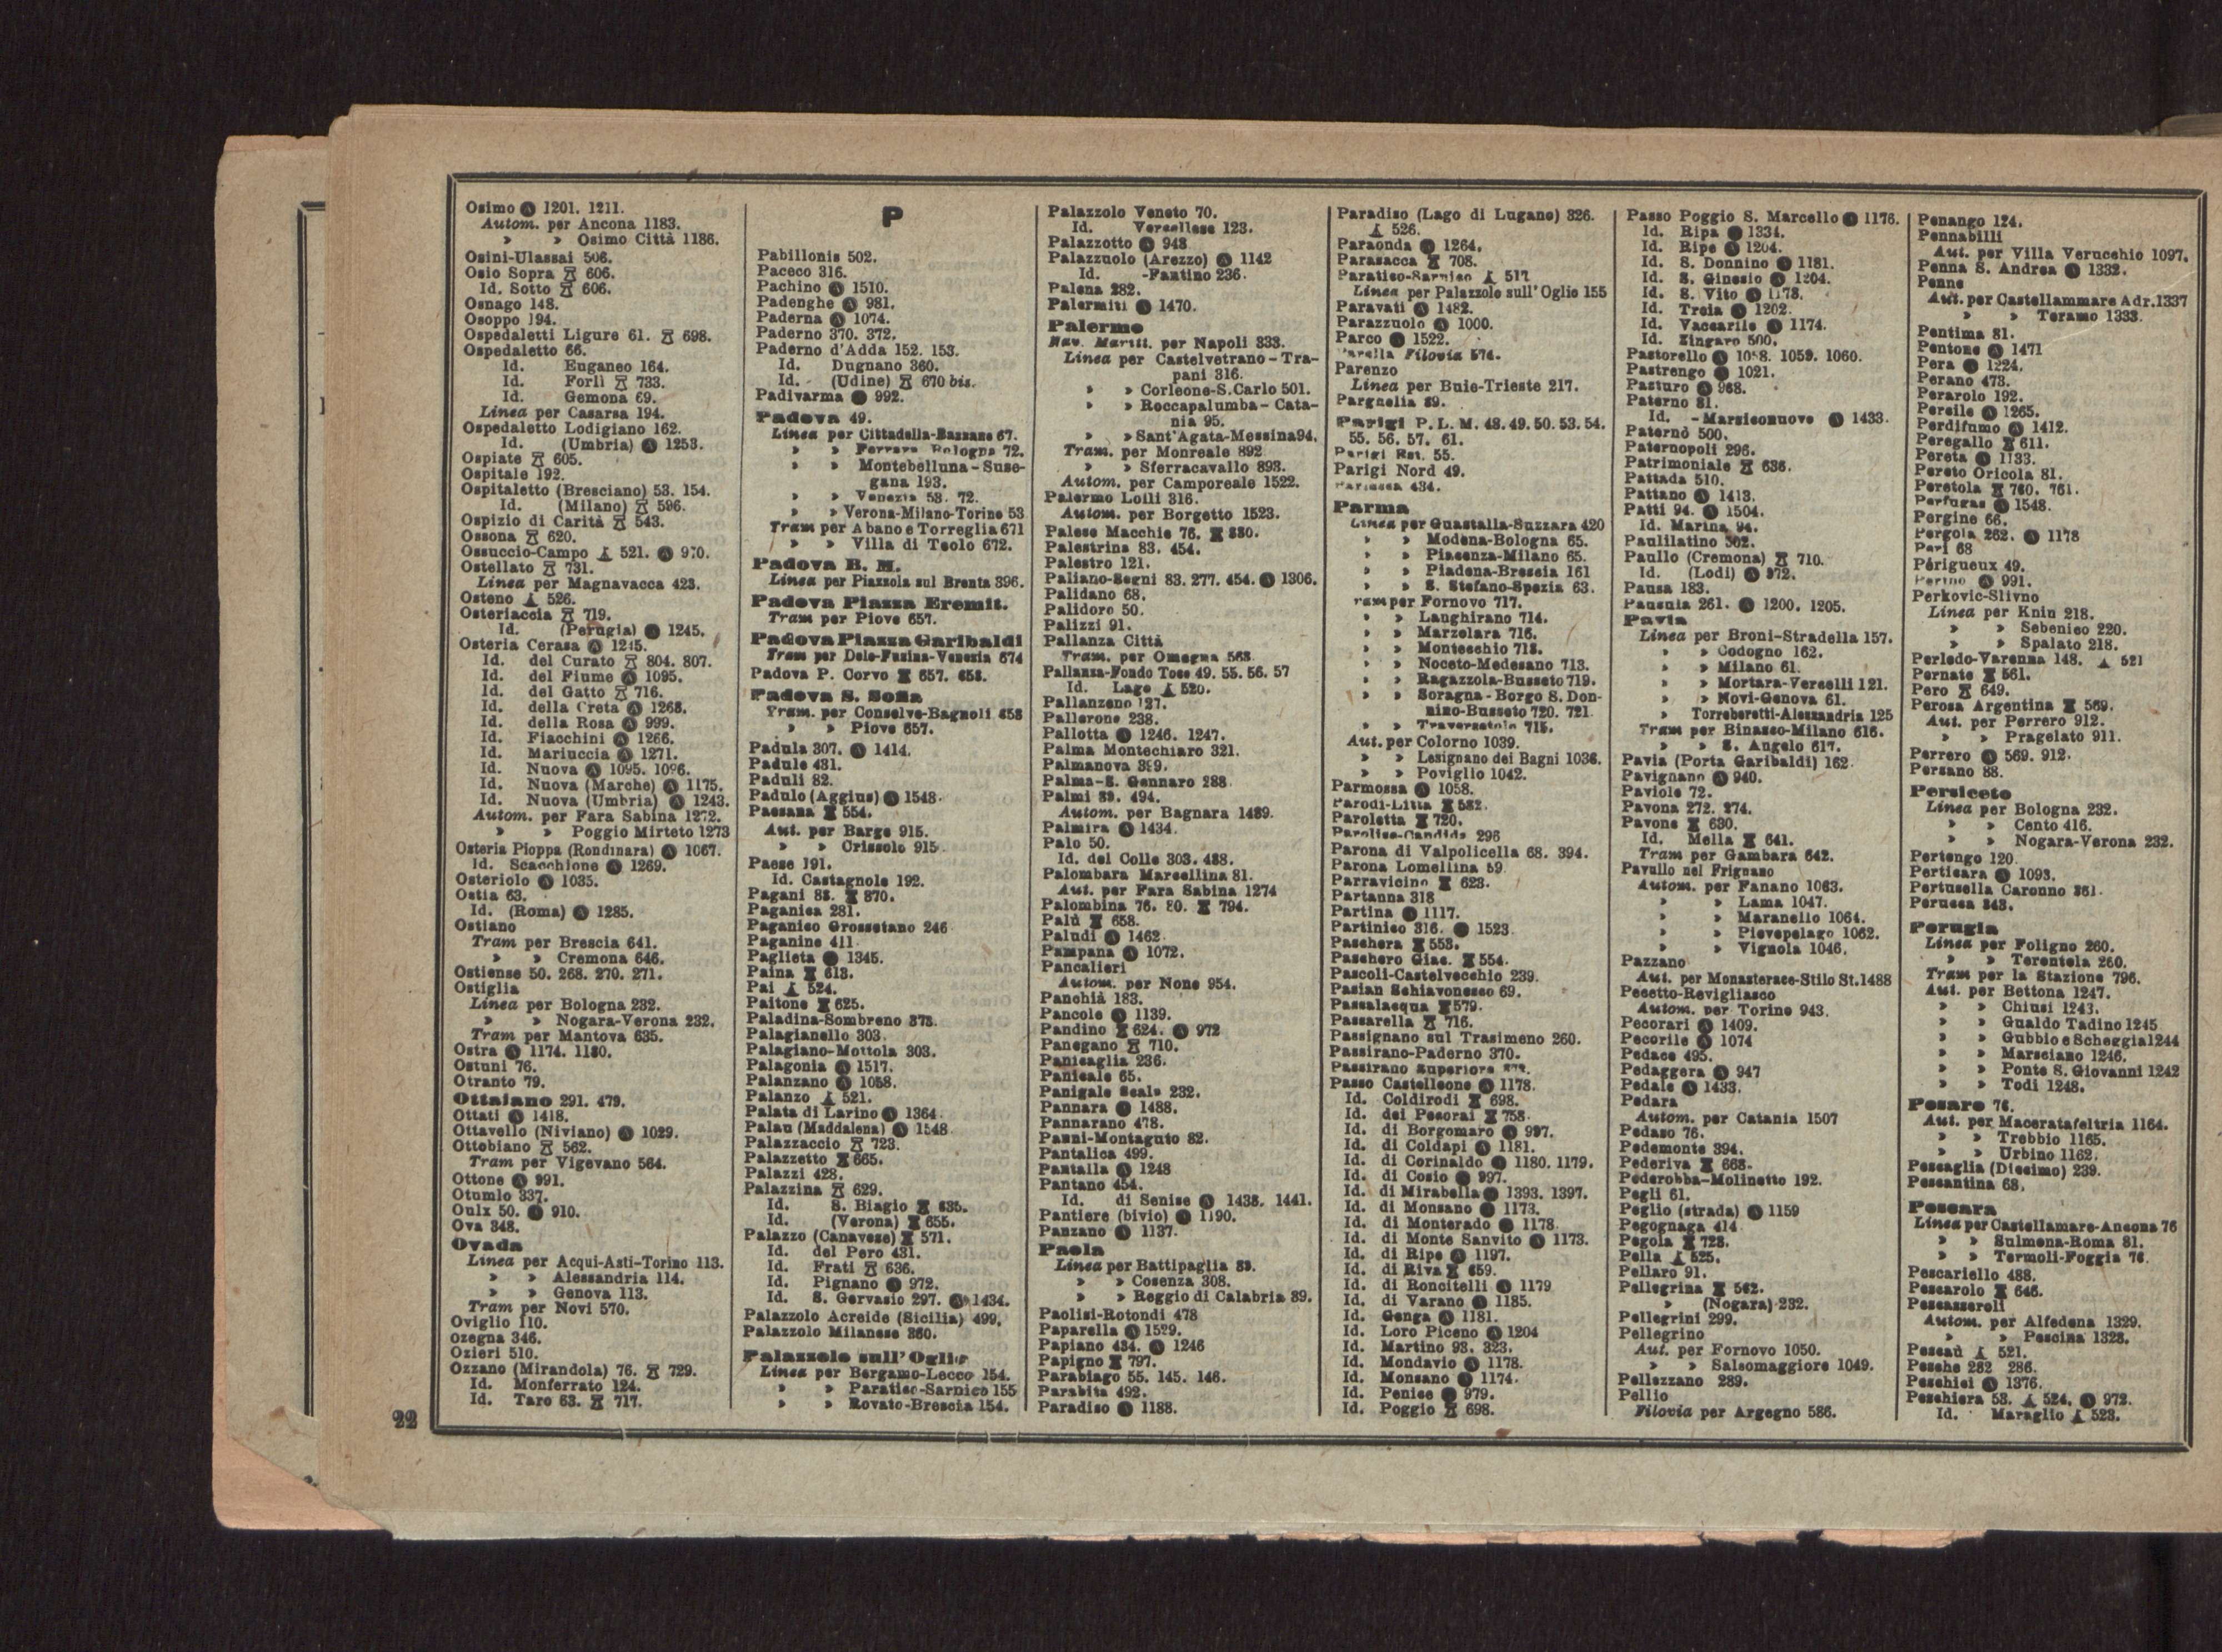 Osimo Ⓐ 1201. 1211.
Autom. per Ancona 1183.
» » Osimo Città 1186.
Osini-Ulassai 506.
Osio Sopra 606.
Id. Sotto 606.
Osnago 148.
Osoppo 194.
Ospedaletti Ligure 61. 698.
Ospedaletto 66.
Id. Euganeo 164.
Id. Forlì 733.
Id. Gemona 69.
Linea per Casarsa 194.
Ospedaletto Lodigiano 162.
Id. (Umbria) Ⓐ 1253.
Ospiate 605.
Ospitale 192.
Ospitaletto (Bresciano) 53. 154.
Id. (Milano) 596.
Ospizio di Carità 543.
Ossona 620.
Ossuccio-Campo 521. Ⓐ 970.
Ostellato 731.
Linea per Magnavacca 423.
Osteno 526.
Osteriaccia 719.
Id. (Perugia) Ⓐ 1245.
Osteria Cerasa Ⓐ 1245.
Id. del Curato 804. 807.
Id. del Fiume Ⓐ 1095.
Id. del Gatto 716.
Id. della Creta Ⓐ 1268.
Id. della Rosa Ⓐ 999.
Id. Fiacchini Ⓐ 1266.
Id. Mariuccia Ⓐ 1271.
Id. Nuova Ⓐ 1095. 1096.
Id. Nuova (Marche) Ⓐ 1175.
Id. Nuova (Umbria) Ⓐ 1243.
Autom. per Fara Sabina 1272.
» » Poggio Mirteto 1273
Osteria Pioppa (Rondinara) Ⓐ 1067.
Id. Scacchione Ⓐ 1269.
Osteriolo Ⓐ 1035.
Ostia 63.
Id. (Roma) Ⓐ 1285.
Ostiano
Tram per Brescia 641.
» » Cremona 646.
Ostiense 50. 268. 270. 271.
Ostiglia
Linea per Bologna 232.
» » Nogara-Verona 232.
Tram per Mantova 635.
Ostra Ⓐ 1174. 1180.
Ostuni 76.
Otranto 79.
Ottaiano 291. 479.
Ottati Ⓐ 1418.
Ottavello (Niviano) Ⓐ 1029.
Ottobiano 562.
Tram per Vigevano 564.
Ottone Ⓐ 991.
Otumlo 337.
Oulx 50. Ⓐ 910.
Ova 348.
Ovada
Linea per Acqui-Asti-Torino 113.
» » Alessandria 114.
» » Genova 113.
Tram per Novi 570.
Oviglio 110.
Ozegna 346.
Ozieri 510.
Ozzano (Mirandola) 76. 729.
Id. Monferrato 124.
Id. Taro 63. 717.
P
Pabillonis 502.
Paceco 316.
Pachino Ⓐ 1510.
Padenghe Ⓐ 981.
Paderna Ⓐ 1074.
Paderno 370. 372.
Paderno d'Adda 152. 153.
Id. Dugnano 360.
Id. (Udine) 670 bis.
Padivarma Ⓐ 992.
Padova 49.
Linea per Cittadella-Bassano 67.
» » Ferrara Bologna 72.
» » Montebelluna-Suse-
gana 193.
» » Venezia 53. 72.
» » Verona-Milano-Torino 53
Tram per Abano e Torreglia 671
» » Villa di Teolo 672.
Padova B. M.
Linea per Piazzola sul Brenta 396.
Padova Piazza Eremit.
Tram per Piove 657.
Padova Piazza Garibaldi
Tram per Dolo-Fusina-Venezia 674
Padova P. Corvo 657. 658.
Padova S. Sofia
Tram. per Conselve-Bagnoli 658
» » Piove 657.
Padula 307. Ⓐ 1414.
Padule 431.
Paduli 82.
Padulo (Aggius) Ⓐ 1548.
Paesana 554.
Aut. per Barge 915.
» » Crissolo 915.
Paese 191.
Id. Castagnole 192.
Pagani 88. 870.
Paganica 281.
Paganico Grossetano 246
Paganine 411
Paglieta Ⓐ 1345.
Paina 613.
Pai 524.
Paitone 625.
Paladina-Sombreno 373.
Palagianello 303
Palagiano-Mottola 303.
Palagonia Ⓐ 1517.
Palanzano Ⓐ 1058.
Palanzo 521.
Palata di Larino Ⓐ 1364.
Palau (Maddalena) Ⓐ 1548
Palazzaccio 723.
Palazzetto 665.
Palazzi 428.
Palazzina 629.
Id. S. Biagio 635.
Id. (Verona) 655.
Palazzo (Canavese) 571.
Id. del Pero 431.
Id. Frati 636.
Id. Pignano Ⓐ 972.
Id. S. Gervasio 297. Ⓐ 1434.
Palazzolo Acreide (Sicilia) 499.
Palazzolo Milanese 360.
Palazzolo sull'Oglio
Linea per Bergamo-Lecco 154.
» » Paratico-Sarnico 155
» » Rovato-Brescia 154.
Palazzolo Veneto 70.
Id. Vercellese 123.
Palazzotto Ⓐ 948
Palazzuolo (Arezzo) Ⓐ 1142
Id. -Fantino 236.
Palena 282.
Palermiti Ⓐ 1470.
Palermo
Nav. Maritt. per Napoli 333.
Linea per Castelvetrano-Tra-
pani 316.
» » Corleone-S. Carlo 501.
» » Roccapalumba-Cata-
nia 95.
» » Sant'Agata-Messina 94.
Tram. per Monreale 892
» » Sferracavallo 893.
Autom. per Camporeale 1522.
Palermo Lolli 316.
Autom. per Borgetto 1523.
Palese Macchie 76. 880.
Palestrina 83. 454.
Palestro 121.
Paliano-Segni 83. 277. 454. Ⓐ 1306.
Palidano 68.
Palidoro 50.
Palizzi 91.
Pallanza Città
Tram. per Omegna 563
Pallanza-Fondo Toce 49. 55. 56. 57
Id. Lago 520.
Pallanzeno 127.
Pallerone 238.
Pallotta Ⓐ 1246. 1247.
Palma Montechiaro 321.
Palmanova 399.
Palma-S. Gennaro 288
Palmi 89. 494.
Autom. per Bagnara 1489.
Palmira Ⓐ 1434.
Palo 50.
Id. del Colle 303. 488.
Palombara Marcellina 81.
Aut. per Fara Sabina 1274
Palombina 76. 80. 794.
Palù 658.
Paludi Ⓐ 1462
Pampana Ⓐ 1072.
Pancalieri
Autom. per None 954.
Panchià 183.
Pancole Ⓐ 1139.
Pandino 624. Ⓐ 972
Panegano 710.
Panicaglia 236.
Panicale 65.
Panigale Scala 232.
Pannara Ⓐ 1488.
Pannarano 478.
Panni-Montaguto 82.
Pantalica 499.
Pantalla Ⓐ 1248
Pantano 454.
Id. di Senise Ⓐ 1438. 1441.
Pantiere (bivio) Ⓐ 1190.
Panzano Ⓐ 1137.
Paola
Linea per Battipaglia 89.
» » Cosenza 308.
» » Reggio di Calabria 89.
Paolisi-Rotondi 478
Paparella Ⓐ 1529.
Papiano 434. Ⓐ 1246
Papigno 797.
Parabiago 55. 145. 146.
Parabita 492.
Paradiso Ⓐ 1188.
Paradiso (Lago di Lugano) 326.
526.
Paraonda Ⓐ 1264.
Parasacca 708.
Paratico-Sarnico 517
Linea per Palazzolo sull'Oglio 155
Paravati Ⓐ 1482.
Parazzuolo Ⓐ 1000.
Parco Ⓐ 1522.
Parella Filovia 574.
Parenzo
Linea per Buie-Trieste 217.
Parghelia 89.
Parigi P. L. M. 48. 49. 50. 53. 54.
55. 56. 57. 61.
Parigi Est. 55.
Parigi Nord 49.
434.
Parma
Linea per Guastalla-Suzzara 420
» » Modena-Bologna 65.
» » Piacenza-Milano 65.
» » Piadena-Brescia 161
» » S. Stefano-Spezia 63.
Tram per Fornovo 717.
» » Langhirano 714.
» » Marzolara 716.
» » Montecchio 718.
» » Noceto-Medesano 713.
» » Ragazzola-Busseto 719.
» » Soragna-Borgo S. Don-
nino-Busseto 720. 721
» » Traversetolo 715.
Aut. per Colorno 1039.
» » Lesignano dei Bagni 1036.
» » Poviglio 1042.
Parmossa Ⓐ 1058.
Parodi-Litta 582.
Paroletta 720.
Parolise-Candida 296
Parona di Valpolicella 68. 394.
Parona Lomellina 59
Parravicino 623.
Partanna 318
Partina Ⓐ 1117.
Partinico 316. Ⓐ 1523
Paschera 553.
Paschero Giac. 554.
Pascoli-Castelvecchio 239.
Pasian Schiavonesco 69.
Passalacqua 579.
Passarella 716.
Passignano sul Trasimeno 260.
Passirano-Paderno 370.
Passirano Superiore
Passo Castelleone Ⓐ 1178.
Id. Coldirodi 698.
Id. dei Pecorai 758
Id. di Borgomaro Ⓐ 997.
Id. di Coldapi Ⓐ 1181.
Id. di Corinaldo Ⓐ 1180. 1179.
Id. di Cosio Ⓐ 997.
Id. di Mirabella Ⓐ 1393. 1397.
Id. di Monsano Ⓐ 1173.
Id. di Monterado Ⓐ 1178
Id. di Monte Sanvito Ⓐ 1173.
Id. di Ripe Ⓐ 1197.
Id. di Riva 659.
Id. di Roncitelli Ⓐ 1179
Id. di Varano Ⓐ 1185.
Id. Genga Ⓐ 1181.
Id. Loro Piceno Ⓐ 1204
Id. Martino 93. 323.
Id. Mondavio Ⓐ 1178.
Id. Monsano Ⓐ 1174.
Id. Penice Ⓐ 979.
Id. Poggio 698.
Passo Poggio S. Marcello Ⓐ 1176.
Id. Ripa Ⓐ 1334.
Id. Ripe Ⓐ 1204.
Id. S. Donnino Ⓐ 1181.
Id. S. Ginesio Ⓐ 1204.
Id. S. Vito Ⓐ 1173.
Id. Treia Ⓐ 1202.
Id. Vaccarile Ⓐ 1174.
Id. Zingaro 500.
Pastorello Ⓐ 1058. 1059. 1060.
Pastrengo Ⓐ 1021.
Pasturo Ⓐ 968.
Paterno 81.
Id. -Marsiconuovo Ⓐ 1433.
Paternò 500.
Paternopoli 296.
Patrimoniale 636.
Pattada 510.
Pattano Ⓐ 1413.
Patti 94. Ⓐ 1504.
Id. Marina 94.
Paulilatino 502.
Paullo (Cremona) 710.
Id. (Lodi) Ⓐ 972.
Pausa 183.
Pausula 261. Ⓐ 1200. 1205.
Pavia
Linea per Broni-Stradella 157.
» » Codogno 162.
» » Milano 61.
» » Mortara-Vercelli 121.
» » Novi-Genova 61.
» Torreberetti-Alessandria 125
Tram per Binasco-Milano 616.
» » S. Angelo 617.
Pavia (Porta Garibaldi) 162
Pavignano Ⓐ 940.
Paviole 72.
Pavona 272. 274.
Pavone 630.
Id. Mella 641.
Tram per Gambara 642.
Pavullo nel Frignano
Autom. per Fanano 1063.
» » Lama 1047.
» » Maranello 1064.
» » Pievepelago 1062.
» » Vignola 1046.
Pazzano
Aut. per Monasterace-Stilo St. 1488
Pecetto-Revigliasco
Autom. per Torino 943.
Pecorari Ⓐ 1409.
Pecorile Ⓐ 1074
Pedace 495.
Pedaggera Ⓐ 947
Pedale Ⓐ 1433.
Pedara
Autom. per Catania 1507
Pedaso 76.
Pedemonte 394.
Pederiva 668.
Pederobba-Molinetto 192.
Pegli 61.
Peglio (strada) Ⓐ 1159
Pegognaga 414
Pegola 728.
Pella 525.
Pellaro 91.
Pellegrina 562.
» (Nogara) 232.
Pellegrini 299.
Pellegrino
Aut. per Fornovo 1050.
» » Salsomaggiore 1049.
Pellezzano 289.
Pellio
Filovia per Argegno 586.
Penango 124.
Pennabilli
Aut. per Villa Verucchio 1097.
Penna S. Andrea Ⓐ 1332.
Penne
Aut. per Castellammare Adr. 1337
» » Teramo 1333.
Pentima 81.
Pentone Ⓐ 1471
Pera Ⓐ 1224.
Perano 473.
Perarolo 192.
Percile Ⓐ 1265.
Perdifumo Ⓐ 1412.
Peregallo 611.
Pereta Ⓐ 1133.
Pereto Oricola 81.
Peretola 760. 761.
Perfugas Ⓐ 1548.
Pergine 66.
Pergola 262. Ⓐ 1178
Peri 68
Périgueux 49.
Perino Ⓐ 991.
Perkovic-Slivno
Linea per Knin 218.
» » Sebenico 220.
» » Spalato 218.
Perledo-Varenna 148. 521
Pernate 561.
Pero 649.
Perosa Argentina 569.
Aut. per Perrero 912.
» » Pragelato 911.
Perrero Ⓐ 569. 912.
Persano 88.
Persiceto
Linea per Bologna 232.
» » Cento 416.
» » Nogara-Verona 232.
Pertengo 120.
Perticara Ⓐ 1093.
Pertusella Caronno 361.
Perucca 343.
Perugia
Linea per Foligno 260.
» » Terontola 260.
Tram per la Stazione 796.
Aut. per Bettona 1247.
» » Chiusi 1243.
» » Gualdo Tadino 1245
» » Gubbio e Scheggia 1244
» » Marsciano 1246.
» » Ponte S. Giovanni 1242
» » Todi 1248.
Pesaro 76.
Aut. per Maceratafeltria 1164.
» » Trebbio 1165.
» » Urbino 1162.
Pescaglia (Diecimo) 239.
Pescantina 68.
Pescara
Linea per Castellamare-Ancona 76
» » Sulmona-Roma 81.
» » Termoli-Foggia 76.
Pescariello 488.
Pescarolo 646.
Pescasseroli
Autom. per Alfedena 1329.
» » Pescina 1328.
Pescaù 521.
Pesche 282 286.
Peschici Ⓐ 1376.
Peschiera 53. 524. Ⓐ 972.
Id. Maraglio 523.
22